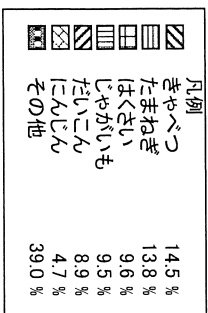 凡例
きゃべつ 14.5 %
たまねぎ 13.8 %
はくさい 9.6 %
じゃがいも 9.5 %
だいこん 8.9 %
にんじん 4.7 %
その他 39.0 %